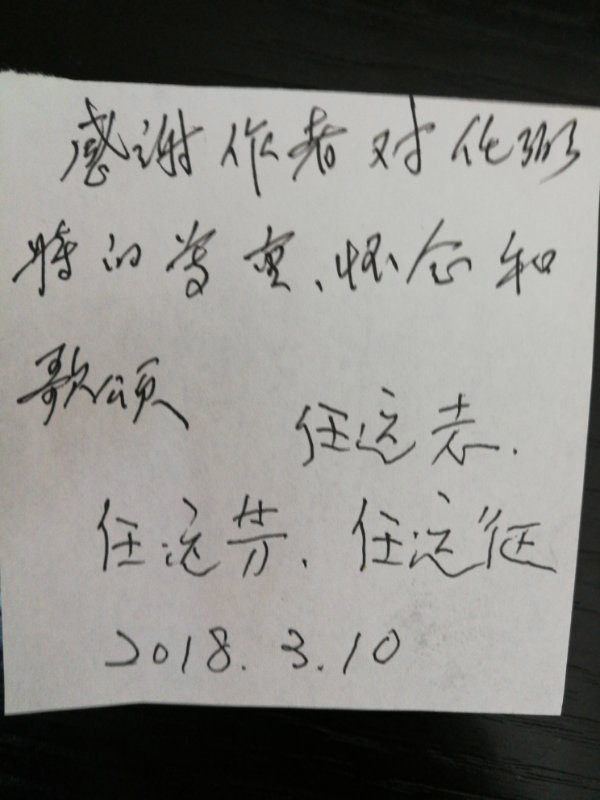 感谢作者对任弼
时的尊重、怀念和
歌颂
任远志、
任远芳、任远征
2018.3.10